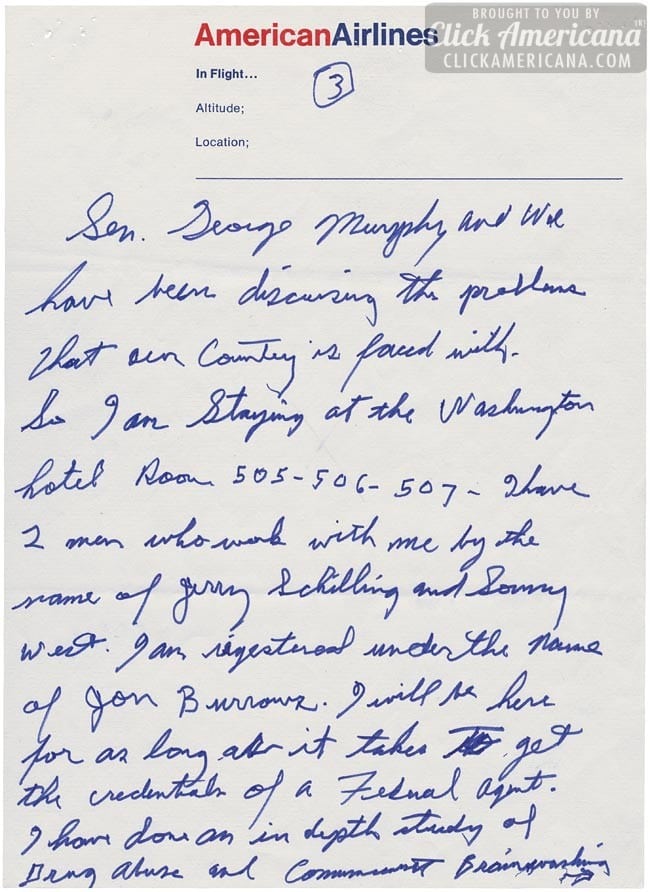 BROUGHT TO YOU BY
Click Americana
CLICKAMERICANA.COM
AmericanAirlines
In Flight...
3
Altitude;
Location;
Sen. George Murphy and We
have been discussing the problems
that our Country is faced with.
So I am Staying at the Washington
hotel Room 505-506-507- I have
2 men who work with me by the
name of Jerry Schilling and Sonny
West. I am registered under the name
of Jon Burrows. I will be here
for as long as it takes to get
the credentials of a Federal Agent.
I have done an in depth study of
Drug Abuse and Communist Brainwashing